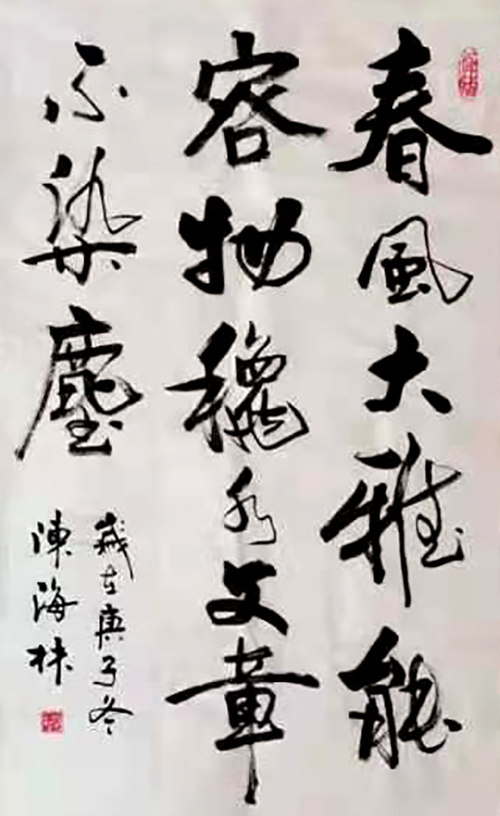 春風大雅能
容物穐水文章
不染塵
歲在庚子冬
陳海林